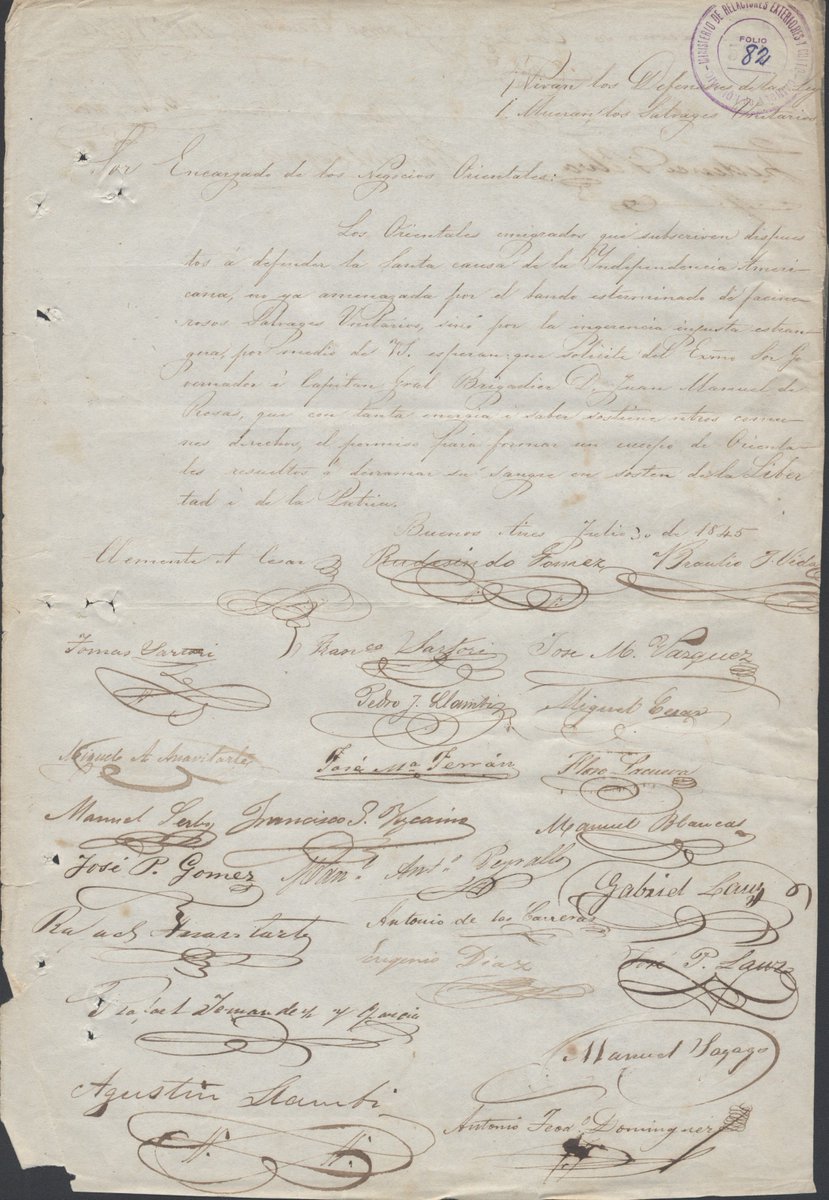 MINISTERIO DE RELACIONES EXTERIORES Y
FOLIO
82
¡Vivan los Defensores de la Ley
¡Mueran los Salvages Unitarios
Sor Encargado de los Negocios Orientales:
Los Orientales emigrados que subscriven dispues
tos á defender la Santa causa de la Yndependencia Ameri-
cana, no ya amenazada por el bando esterminado de facine-
rosos Salvages Unitarios, sinó por la ingerencia injusta estran-
gera, por medio de VS. esperan que solicite del Exmo Sor Go
vernador i Capitan Gral Brigadier D. Juan Manuel de
Rosas, que con tanta energia i saber sostiene ntros comu-
nes derechos, el permiso para formar un cuerpo de Orienta-
les resueltos á derramar su sangre en sosten de la Liber
tad i de la Patria.
Buenos Aires Julio 30 de 1845
Clemente A Cesar Rudesindo Gomez Braulio J. Vidal
Tomas Sartori Franco Sartori Jose M. Vazquez
Pedro J. Llambi Miguel Cesar
Miguel A Anavitarte José Ma Ferrán Floro
Manuel Francisco P. Vizcaino Manuel Blancas
José P. Gomez Man.l Ant.o Peyrallo Gabriel Lauz
Rafael Anavitarte Antonio de las Carreras
Eugenio Diaz José P. Lauz
Rafael Fernandez y Garcia
Manuel Sagago
Agustin Llambi
Antonio Teod.o Dominguez